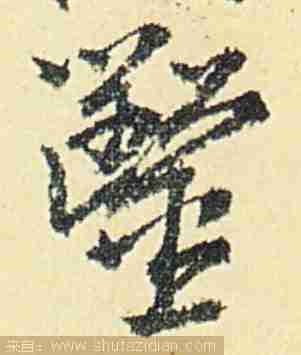 鑿
来自：www.shufazidian.com